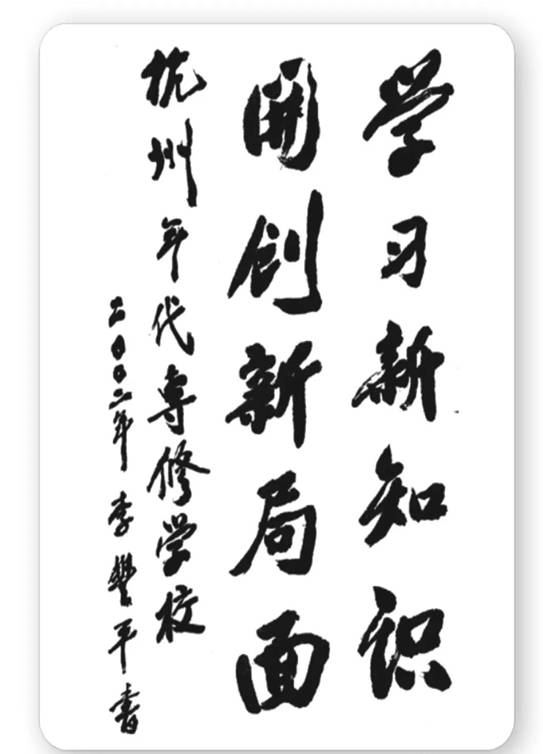 学习新知识
開创新局面
杭州年代专修学校
二〇〇二年李豐平書